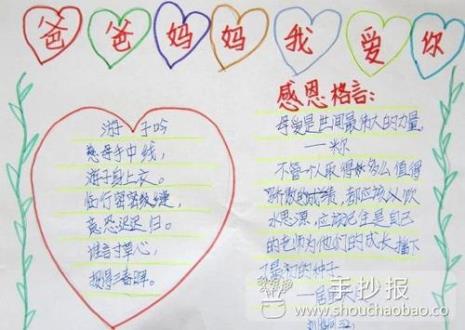 爸爸妈妈我爱你
游子吟
慈母手中线,
游子身上衣。
临行密密缝,
意恐迟迟归。
谁言寸草心,
报得三春晖。
感恩格言:
母爱是世间最伟大的力量。
—米尔
不管一 取得 多么值得
骄傲的成绩,都应该 饮
水思源,应该记住是自己
的老师为他们的成长播下
了最初的种子。
—居里
手抄报
www.shouchaobao.com.cn